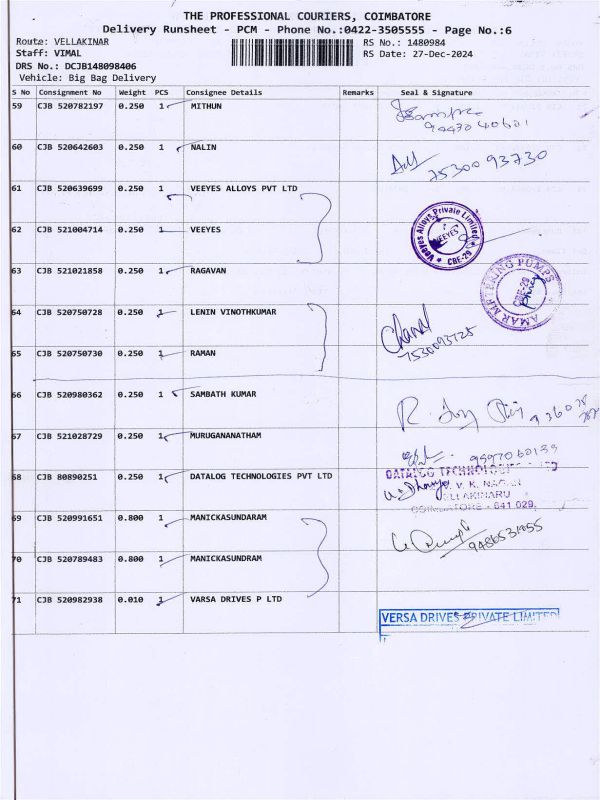 THE PROFESSIONAL COURIERS, COIMBATORE
Delivery Runsheet - PCM - Phone No.:0422-3505555 - Page No.:6
Route: VELLAKINAR
RS No.: 1480984
Staff: VIMAL
RS Date: 27-Dec-2024
DRS No.: DCJB148098406
Vehicle: Big Bag Delivery
S No Consignment No Weight PCS Consignee Details Remarks Seal & Signature
59 CJB 520782197 0.250 1 MITHUN
60 CJB 520642603 0.250 1 NALIN
7530093730
61 CJB 520639699 0.250 1 VEEYES ALLOYS PVT LTD
Veeyes Alloys Private Limited
VEEYES
★ CBE-29 ★
62 CJB 521004714 0.250 1 VEEYES
63 CJB 521021858 0.250 1 RAGAVAN
AMAR METERING PUMPS
CBE-29
64 CJB 520750728 0.250 1 LENIN VINOTHKUMAR
7530093725
65 CJB 520750730 0.250 1 RAMAN
66 CJB 520980362 0.250 1 SAMBATH KUMAR
67 CJB 521028729 0.250 1 MURUGANANTHAM
68 CJB 80890251 0.250 1 DATALOG TECHNOLOGIES PVT LTD
DATALOG TECHNOLOGIES
V. K. NAGAR
VELLAKINARU
COIMBATORE - 641 029.
69 CJB 520991651 0.800 1 MANICKASUNDARAM
70 CJB 520789483 0.800 1 MANICKASUNDRAM
71 CJB 520982938 0.010 1 VARSA DRIVES P LTD
VERSA DRIVES PRIVATE LIMITED